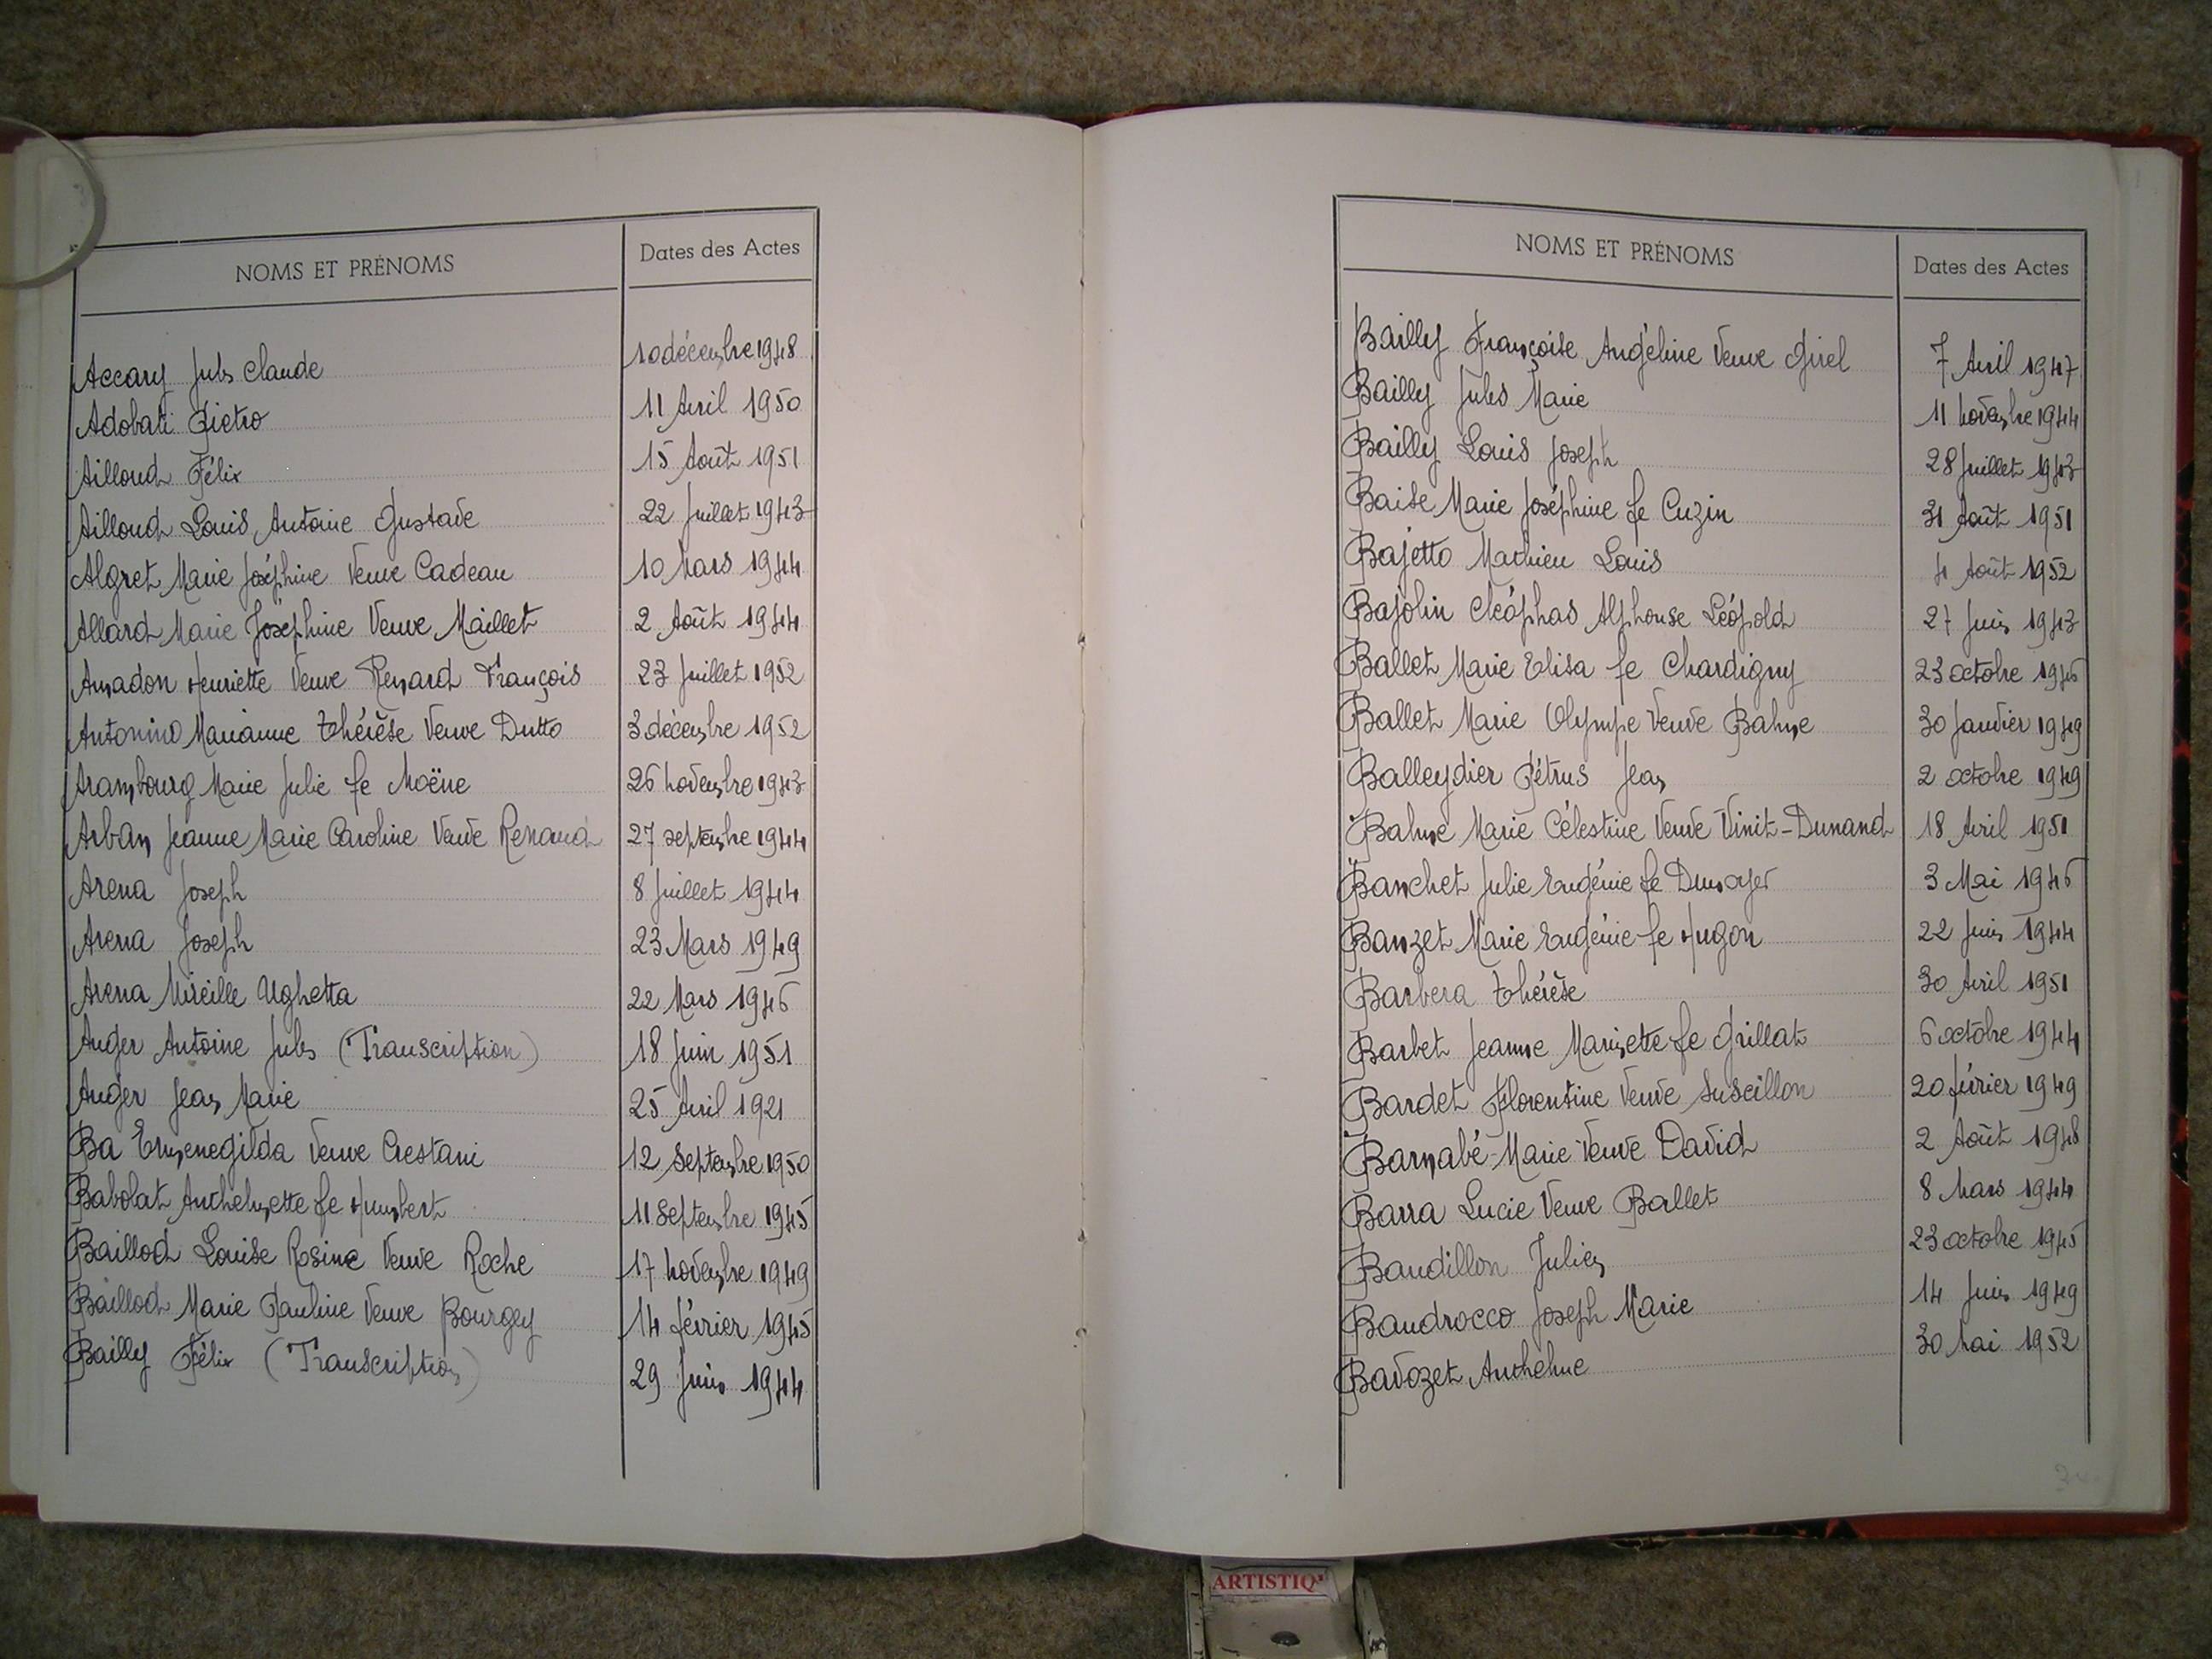 NOMS ET PRÉNOMS Dates des Actes
Accary Jules Claude 10 décembre 1948
Adobati Pietro 11 Avril 1950
Ailloud Félix 15 Août 1951
Ailloud Louis Antoine Gustave 22 Juillet 1943
Algret Marie Joséphine Veuve Cadeau 10 Mars 1944
Allard Marie Joséphine Veuve Maillet 2 Août 1944
Amadon Henriette Veuve Renard François 23 Juillet 1952
Antonino Marianne Thérèse Veuve Dutto 3 décembre 1952
Arambourg Marie Julie fe Moëne 26 Novembre 1943
Arban Jeanne Marie Caroline Veuve Renaud 27 septembre 1944
Arena Joseph 8 Juillet 1944
Arena Joseph 23 Mars 1949
Arena Mireille Ughetta 22 Mars 1946
Auger Antoine Jules (Transcription) 18 Juin 1951
Auger Jean Marie 25 Avril 1921
Ba Ermenegilda Veuve Crestani 12 Septembre 1950
Babolat Anthelmette fe Humbert 11 Septembre 1945
Baillod Louise Rosine Veuve Roche 17 Novembre 1949
Baillod Marie Pauline Veuve Bourgey 14 février 1945
Bailly Félix (Transcription) 29 Juin 1944
NOMS ET PRÉNOMS Dates des Actes
Bailly Françoise Angéline Veuve Girel 7 Avril 1947
Bailly Jules Marie 11 Novembre 1944
Bailly Louis Joseph 28 Juillet 1943
Baise Marie Joséphine fe Cuzin 31 Août 1951
Bajetto Mathieu Louis 4 Août 1952
Bajolin Cléophas Alphonse Léopold 27 Juin 1943
Ballet Marie Elisa fe Chardigny 23 octobre 1946
Ballet Marie Olympe Veuve Balme 30 Janvier 1949
Balleydier Pétrus Jean 2 octobre 1949
Balme Marie Célestine Veuve Vinit-Dunand 18 Avril 1951
Banchet Julie Eugénie fe Dunoyer 3 Mai 1946
Banzet Marie Eugénie fe Hugon 22 Juin 1944
Barbera Thérèse 30 Avril 1951
Barbet Jeanne Mariette fe Grillat 6 octobre 1944
Bardet Florentine Veuve Suscillon 20 février 1949
Barnabé Marie Veuve David 2 Août 1948
Barra Lucie Veuve Ballet 8 Mars 1944
Baudillon Julien 23 octobre 1945
Baudrocco Joseph Marie 14 Juin 1949
Bavozet Anthelme 30 Mai 1952
ARTISTIQ